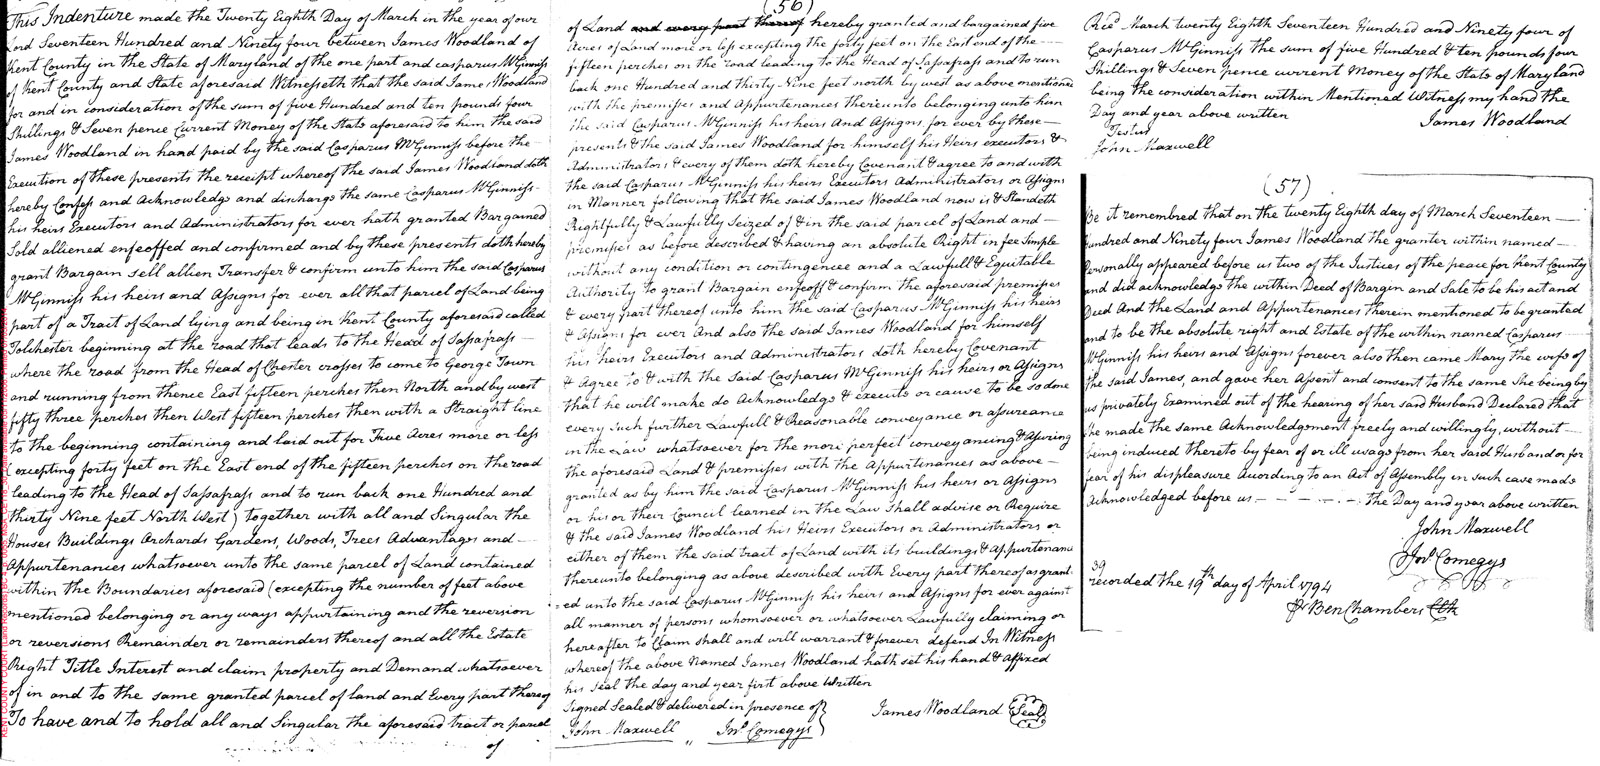 This Indenture made the Twenty Eighth Day of March in the year of our
Lord Seventeen Hundred and Ninety four between James Woodland of
Kent County in the State of Maryland of the one part and casparus McGinniss
of Kent County and State aforesaid Witnesseth that the said James Woodland
for and in consideration of the sum of five Hundred and ten pounds four
Shillings & Seven pence Current Money of the State aforesaid to him the said
James Woodland in hand paid by the said Casparus McGinniss before the
Execution of these presents the receipt whereof the said James Woodland doth
hereby Confess and Acknowledge and discharge the same Casparus McGinniss
his heirs Executors and Administrators for ever hath granted Bargained
Sold alliened enfeoffed and confirmed and by these presents doth hereby
grant Bargain sell allien Transfer & confirm unto him the said Casparus
McGinniss his heirs and Assigns for ever all that parcel of Land being
part of a Trait of Land lying and being in Kent County aforesaid called
Tolchester beginning at the road that leads to the Head of Sassafrass
where the road from the Head of Chester crosses to come to George Town
and running from thence East fifteen perches then North and by west
fifty three perches then West fifteen perches then with a Straight line
to the beginning containing and laid out for Five Acres more or less
(excepting forty feet on the East end of the fifteen perches on the road
leading to the Head of Sassafrass and to run back one Hundred and
thirty Nine feet North West) together with all and Singular the
Houses Buildings Orchards Gardens, Woods, Trees Advantages and
Appurtenances whatsoever unto the same parcel of Land contained
within the Boundaries aforesaid (excepting the number of feet above
mentioned belonging or any ways appurtaining and the reversion
or reversions Remainder or remainders thereof and all the Estate
Right Title Interest and claim property and Demand whatsoever
of in and to the same granted parcel of land and Every part thereof
To have and to hold all and Singular the aforesaid tract or parcel
of
(56)
of Land and every part thereof hereby granted and bargained five
Acres of Land more or less excepting the forty feet on the East end of the
fifteen perches on the road leading to the Head of Sassafrass and to run
back one Hundred and thirty-Nine feet north by west as above mentioned
with the premises and Appurtenances thereunto belonging unto him
the said Casparus McGinniss his heirs And Assigns for ever by these
presents & the said James Woodland for himself his Heirs executors &
Administrators & every of them doth hereby Covenant & agree to and with
the said Casparus McGinniss his heirs Executors Administrators or Assigns
in Manner following that the said James Woodland now is & Standeth
Rightfully & Lawfully Seized of & in the said parcel of Land and
premises as before described & having an absolute Right in fee Simple
without any condition or contingence and a Lawfull & Equitable
Authority to grant Bargain enfeoff & confirm the aforesaid premises
& every part thereof unto him the said Casparus McGinniss his heirs
& Assigns for ever And also the said James Woodland for himself
his heirs Executors and Administrators doth hereby Covenant
& Agree to & with the Said Casparus McGinniss his heirs or Assigns
that he will make do Acknowledge & execute or cause to be so done
every such further Lawfull & Reasonable conveyance or assureance
in the Law whatsoever for the more perfect conveyancing & Assuring
the aforesaid Land & premises with the Appurtenances as above
granted as by him the said Casparus McGinniss his heirs or Assigns
or his or their Council learned in the Law Shall advise or Require
& the said James Woodland his Heirs Executors or Administrators or
either of them the said trait of Land with its buildings & Appurtenance
thereunto belonging as above described with Every part thereof as grant
=ed unto the said Casparus McGinniss his heirs and Assigns for ever against
all manner of persons whomsoever or whatsoever Lawfully claiming or
hereafter to Claim shall and will warrant & forever defend In Witness
whereof the above Named James Woodland hath set his hand & affixed
his Seal the day and year first above Written
Signed Sealed & delivered in presence of} James Woodland Seal
John Maxwell " Jno. Comegys
Recd. March twenty Eighth Seventeen Hundred and Ninety four of
Casparus McGinniss the sum of five Hundred & ten pounds four
Shillings & Seven pence current Money of the State of Maryland
being the consideration within Mentioned Witness my hand the
Day and year above written James Woodland
Testus
John Maxwell
(57)
Be it remembred that on the twenty Eighth day of March Seventeen
Hundred and Ninety four James Woodland the granter within named
Personally appeared before us two of the Justices of the peace for Kent County
and did acknowledge the within Deed of Bargin and Sale to be his act and
Deed And the Land and Appurtenances Therein mentioned to be granted
and to be the absolute right and Estate of the within named Casparus
McGinniss his heirs and Assigns forever also then came Mary the wife of
the said James, and gave her Assent and consent to the same She being by
us privately Examined out of the hearing of her said Husband Declared that
She made the same Acknowledgement freely and willingly, without
being induced thereto by fear of or ill usage from her said Husband or for
fear of his displeasure Acording to an Act of Assembly in such case made
Acknowledged before us - - - - - the Day and year above written
John Maxwell
Jno. Comegys
39
recorded the 19th day of April 1794
Pr Ben Chambers Clk